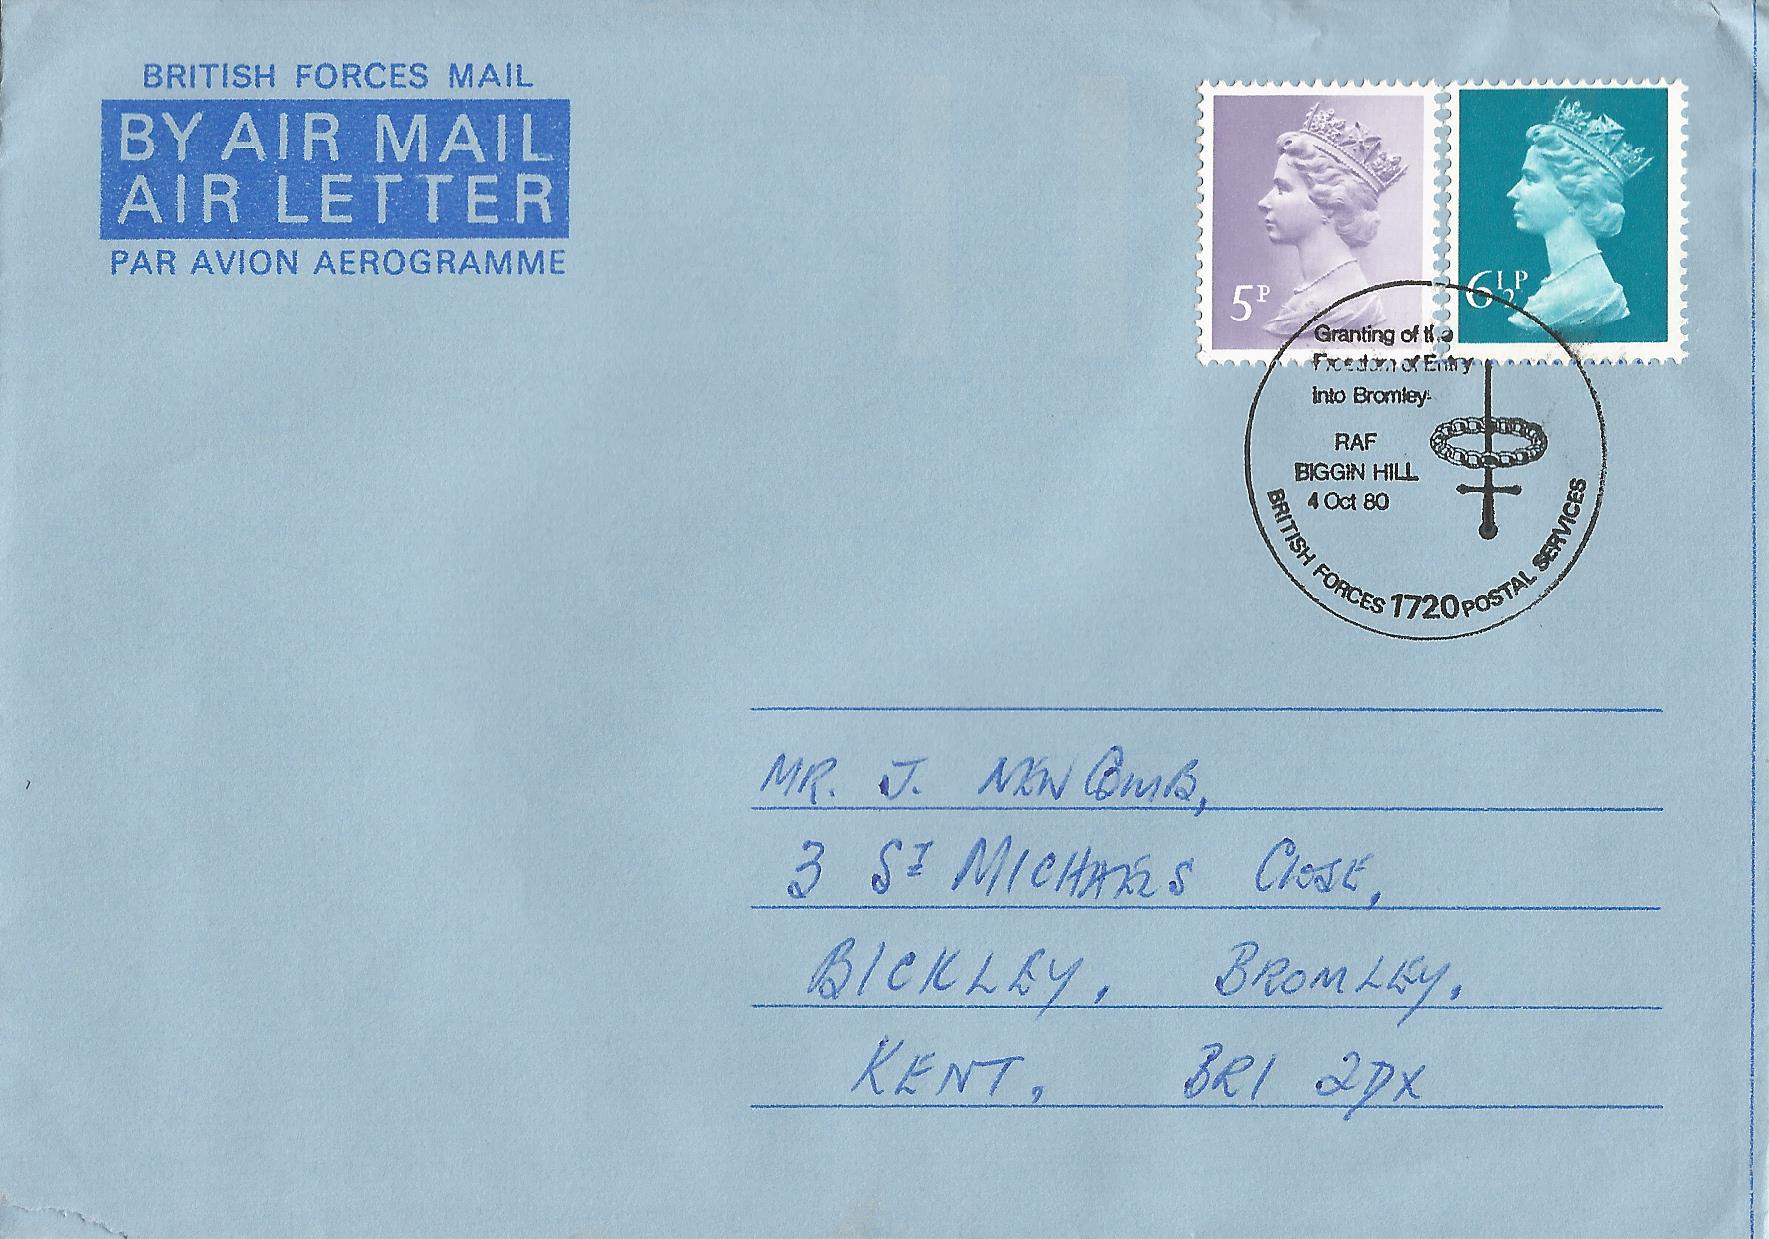 BRITISH FORCES MAIL
BY AIR MAIL
AIR LETTER
PAR AVION AEROGRAMME
5P
6½P
Granting of the
Freedom of Entry
into Bromley
RAF
BIGGIN HILL
4 Oct 80
BRITISH FORCES 1720 POSTAL SERVICES
MR. J. NEWCOMB,
3 ST MICHAELS CLOSE,
BICKLEY, BROMLEY,
KENT, BR1 2DX